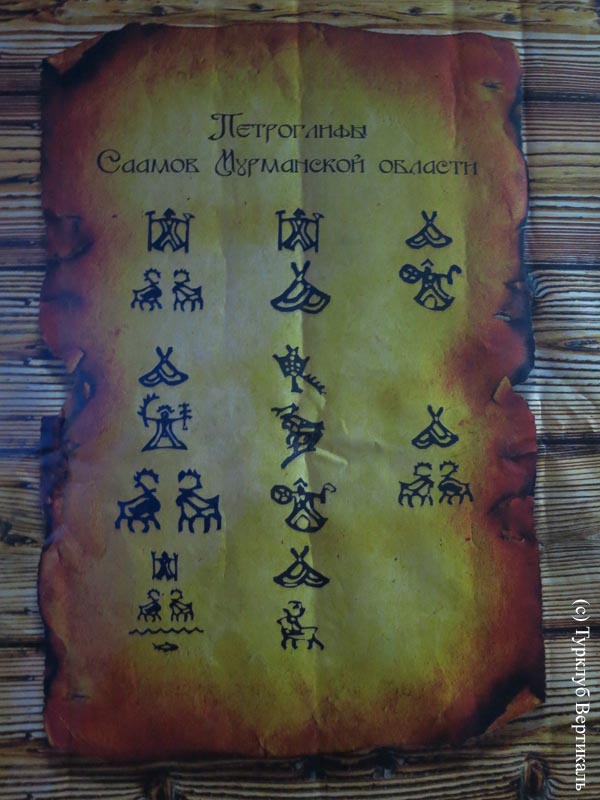 Петроглифы
Саамов Мурманской области
(с) Турклуб Вертикаль